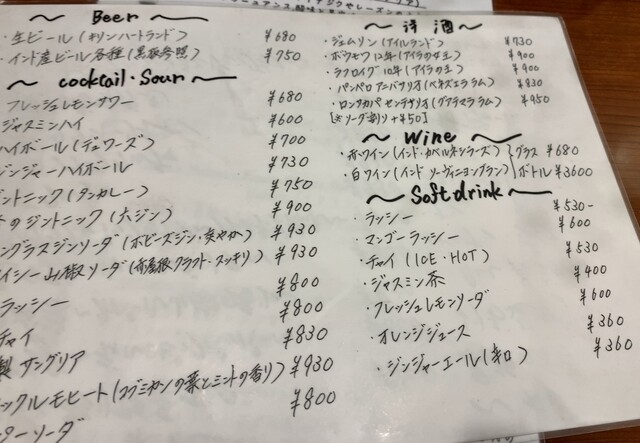 ~ Beer ~
・生ビール(キリンハートランド) ¥680
・インド産ビール各種(黒板参照) ¥750
~ cocktail・Sour ~
フレッシュレモンサワー ¥680
ジャスミンハイ ¥600
ハイボール(デュワーズ) ¥700
ジンジャーハイボール ¥730
ジントニック(タンカレー) ¥750
のジントニック(大ジン) ¥900
ングラスジンソーダ(ボビーズジン・爽やか) ¥930
イシー山椒ソーダ(赤屋根クラフト・スッキリ) ¥930
ラッシー ¥800
チャイ ¥800
製サングリア ¥830
ックルモヒート(コブミカンの葉とミントの香り) ¥930
ーソーダ ¥800
~ 洋酒 ~
・ジェムソン(アイルランド) ¥730
・ボウモア12年(アイラの女王) ¥900
・ラフロイグ10年(アイラの王) ¥900
・パンペロ アニバサリオ(ベネズエララム) ¥830
・ロンサカパ センテナリオ(グアテマララム) ¥950
[※ソーダ割り+¥50]
~ Wine ~
・赤ワイン(インド・カベルネソーヴィニヨン) グラス ¥680
・白ワイン(インド ソーヴィニヨンブラン) ボトル ¥3600
~ Soft drink ~
・ラッシー ¥530-
・マンゴーラッシー ¥600
・チャイ(ICE・HOT) ¥530
・ジャスミン茶 ¥400
・フレッシュレモンソーダ ¥600
・オレンジジュース ¥360
・ジンジャーエール(辛口) ¥360